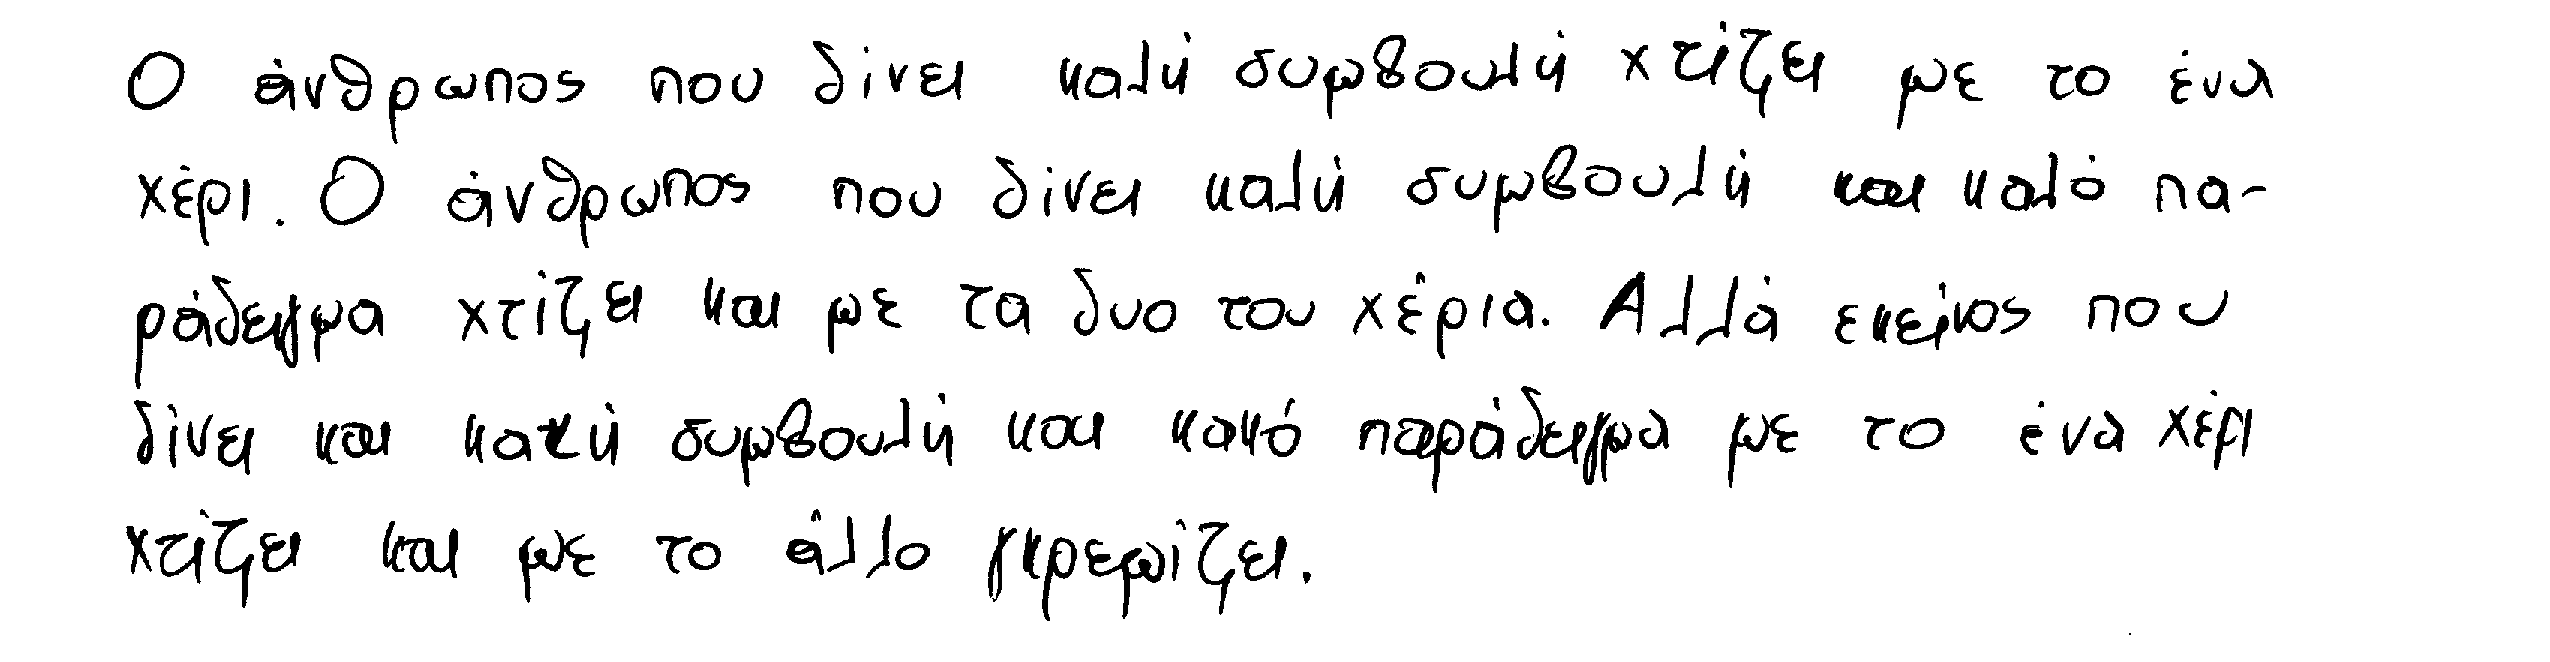 Ο άνθρωπος που δίνει καλή συμβουλή χτίζει με το ένα
χέρι. Ο άνθρωπος που δίνει καλή συμβουλή και καλό πα-
ράδειγμα χτίζει και με τα δυο του χέρια. Αλλά εκείνος που
δίνει και κακή συμβουλή και κακό παράδειγμα με το ένα χέρι
χτίζει και με το άλλο γκρεμίζει.